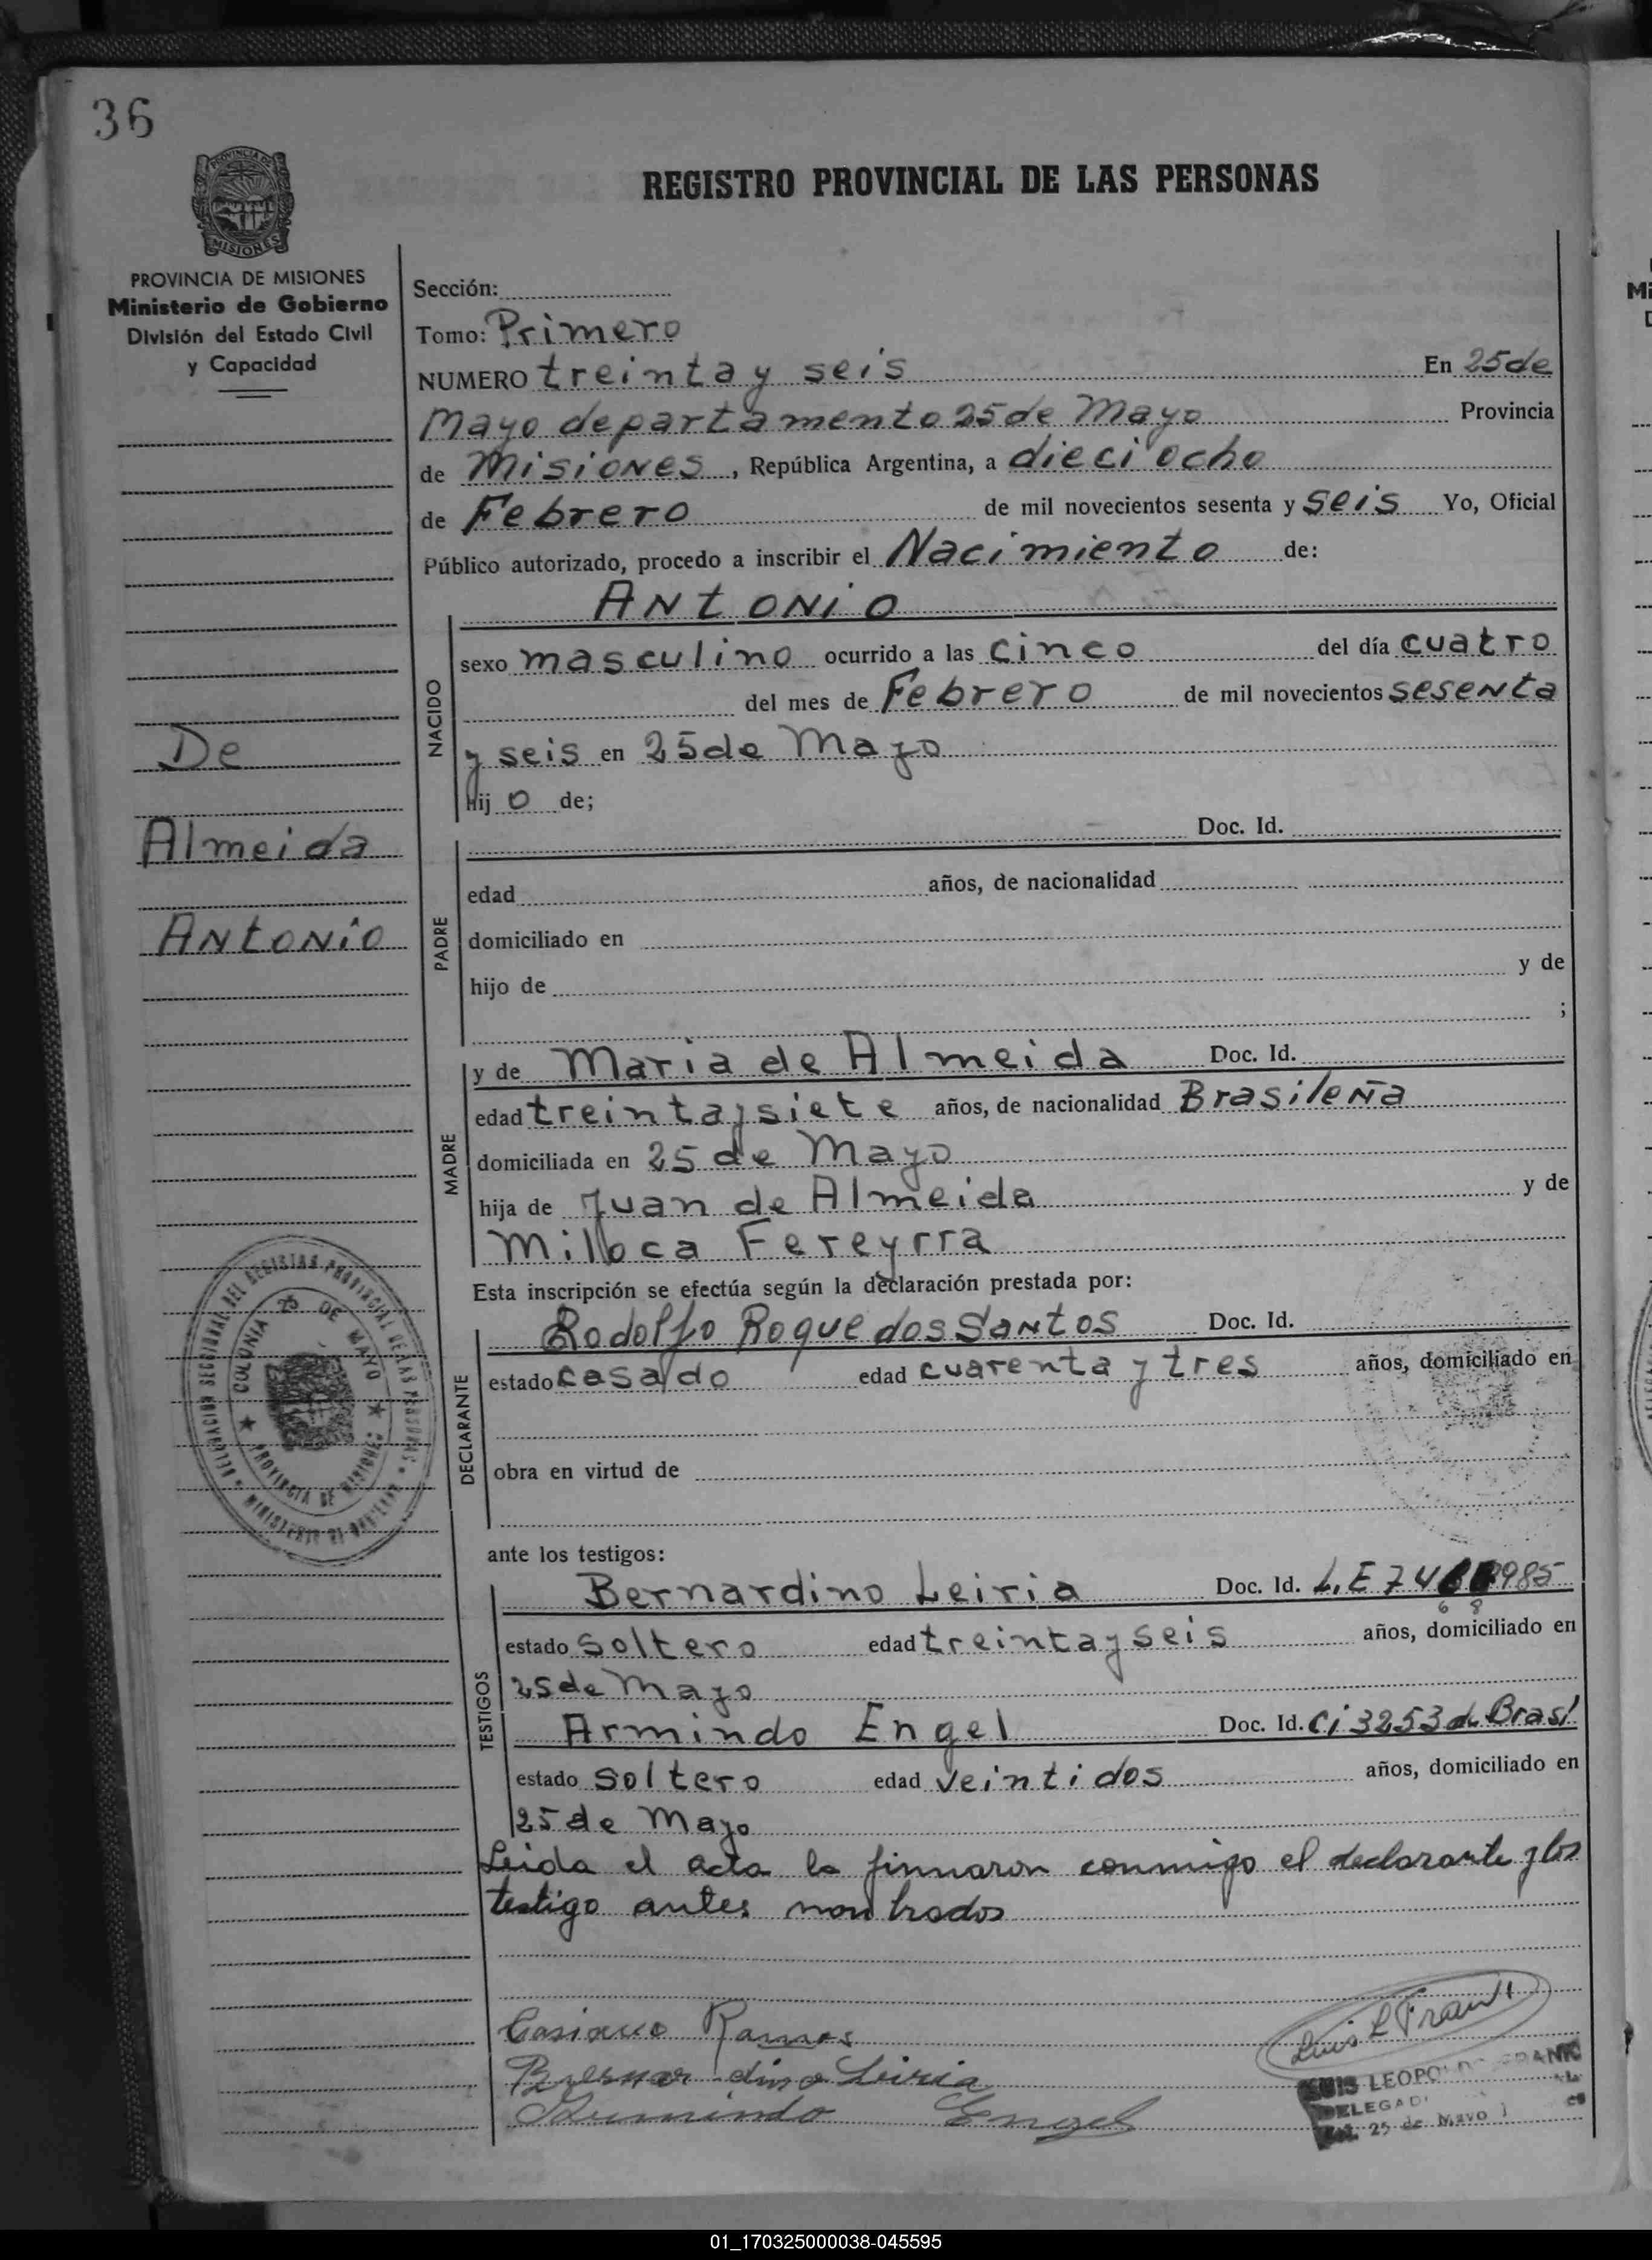 36
PROVINCIA DE MISIONES
REGISTRO PROVINCIAL DE LAS PERSONAS
PROVINCIA DE MISIONES
Ministerio de Gobierno
División del Estado Civil
y Capacidad
De
Almeida
Antonio
Sección:
Tomo: Primero
NUMERO treinta y seis En 25 de
Mayo departamento 25 de Mayo Provincia
de Misiones, República Argentina, a dieciocho
de Febrero de mil novecientos sesenta y seis Yo, Oficial
Público autorizado, procedo a inscribir el Nacimiento de:
Antonio
NACIDO
sexo masculino ocurrido a las cinco del día cuatro
del mes de Febrero de mil novecientos sesenta
y seis en 25 de Mayo
hijo de;
PADRE
Doc. Id.
edad años, de nacionalidad
domiciliado en
hijo de y de
;
MADRE
y de Maria de Almeida Doc. Id.
edad treinta y siete años, de nacionalidad Brasileña
domiciliada en 25 de Mayo
hija de Juan de Almeida y de
Milloca Fereyrra
Esta inscripción se efectúa según la declaración prestada por:
DECLARANTE
Rodolfo Roque dos Santos Doc. Id.
estado casado edad cuarenta y tres años, domiciliado en
obra en virtud de
ante los testigos:
TESTIGOS
Bernardino Leiria Doc. Id. L.E 74 985
6 8
estado soltero edad treinta y seis años, domiciliado en
25 de Mayo
Armindo Engel Doc. Id. Ci 3253 de Brasl
estado soltero edad veintidos años, domiciliado en
25 de Mayo
Leida el acta la firmaron conmigo el declarante y los
testigo antes nombrados
COLONIA 25 DE MAYO
PROVINCIA DE MISIONES
Casiano Ramos
Bernardino Leiria
Armindo Engel
LUIS LEOPOLDO FRANK
DELEGAD
25 de Mayo
01_170325000038-045595